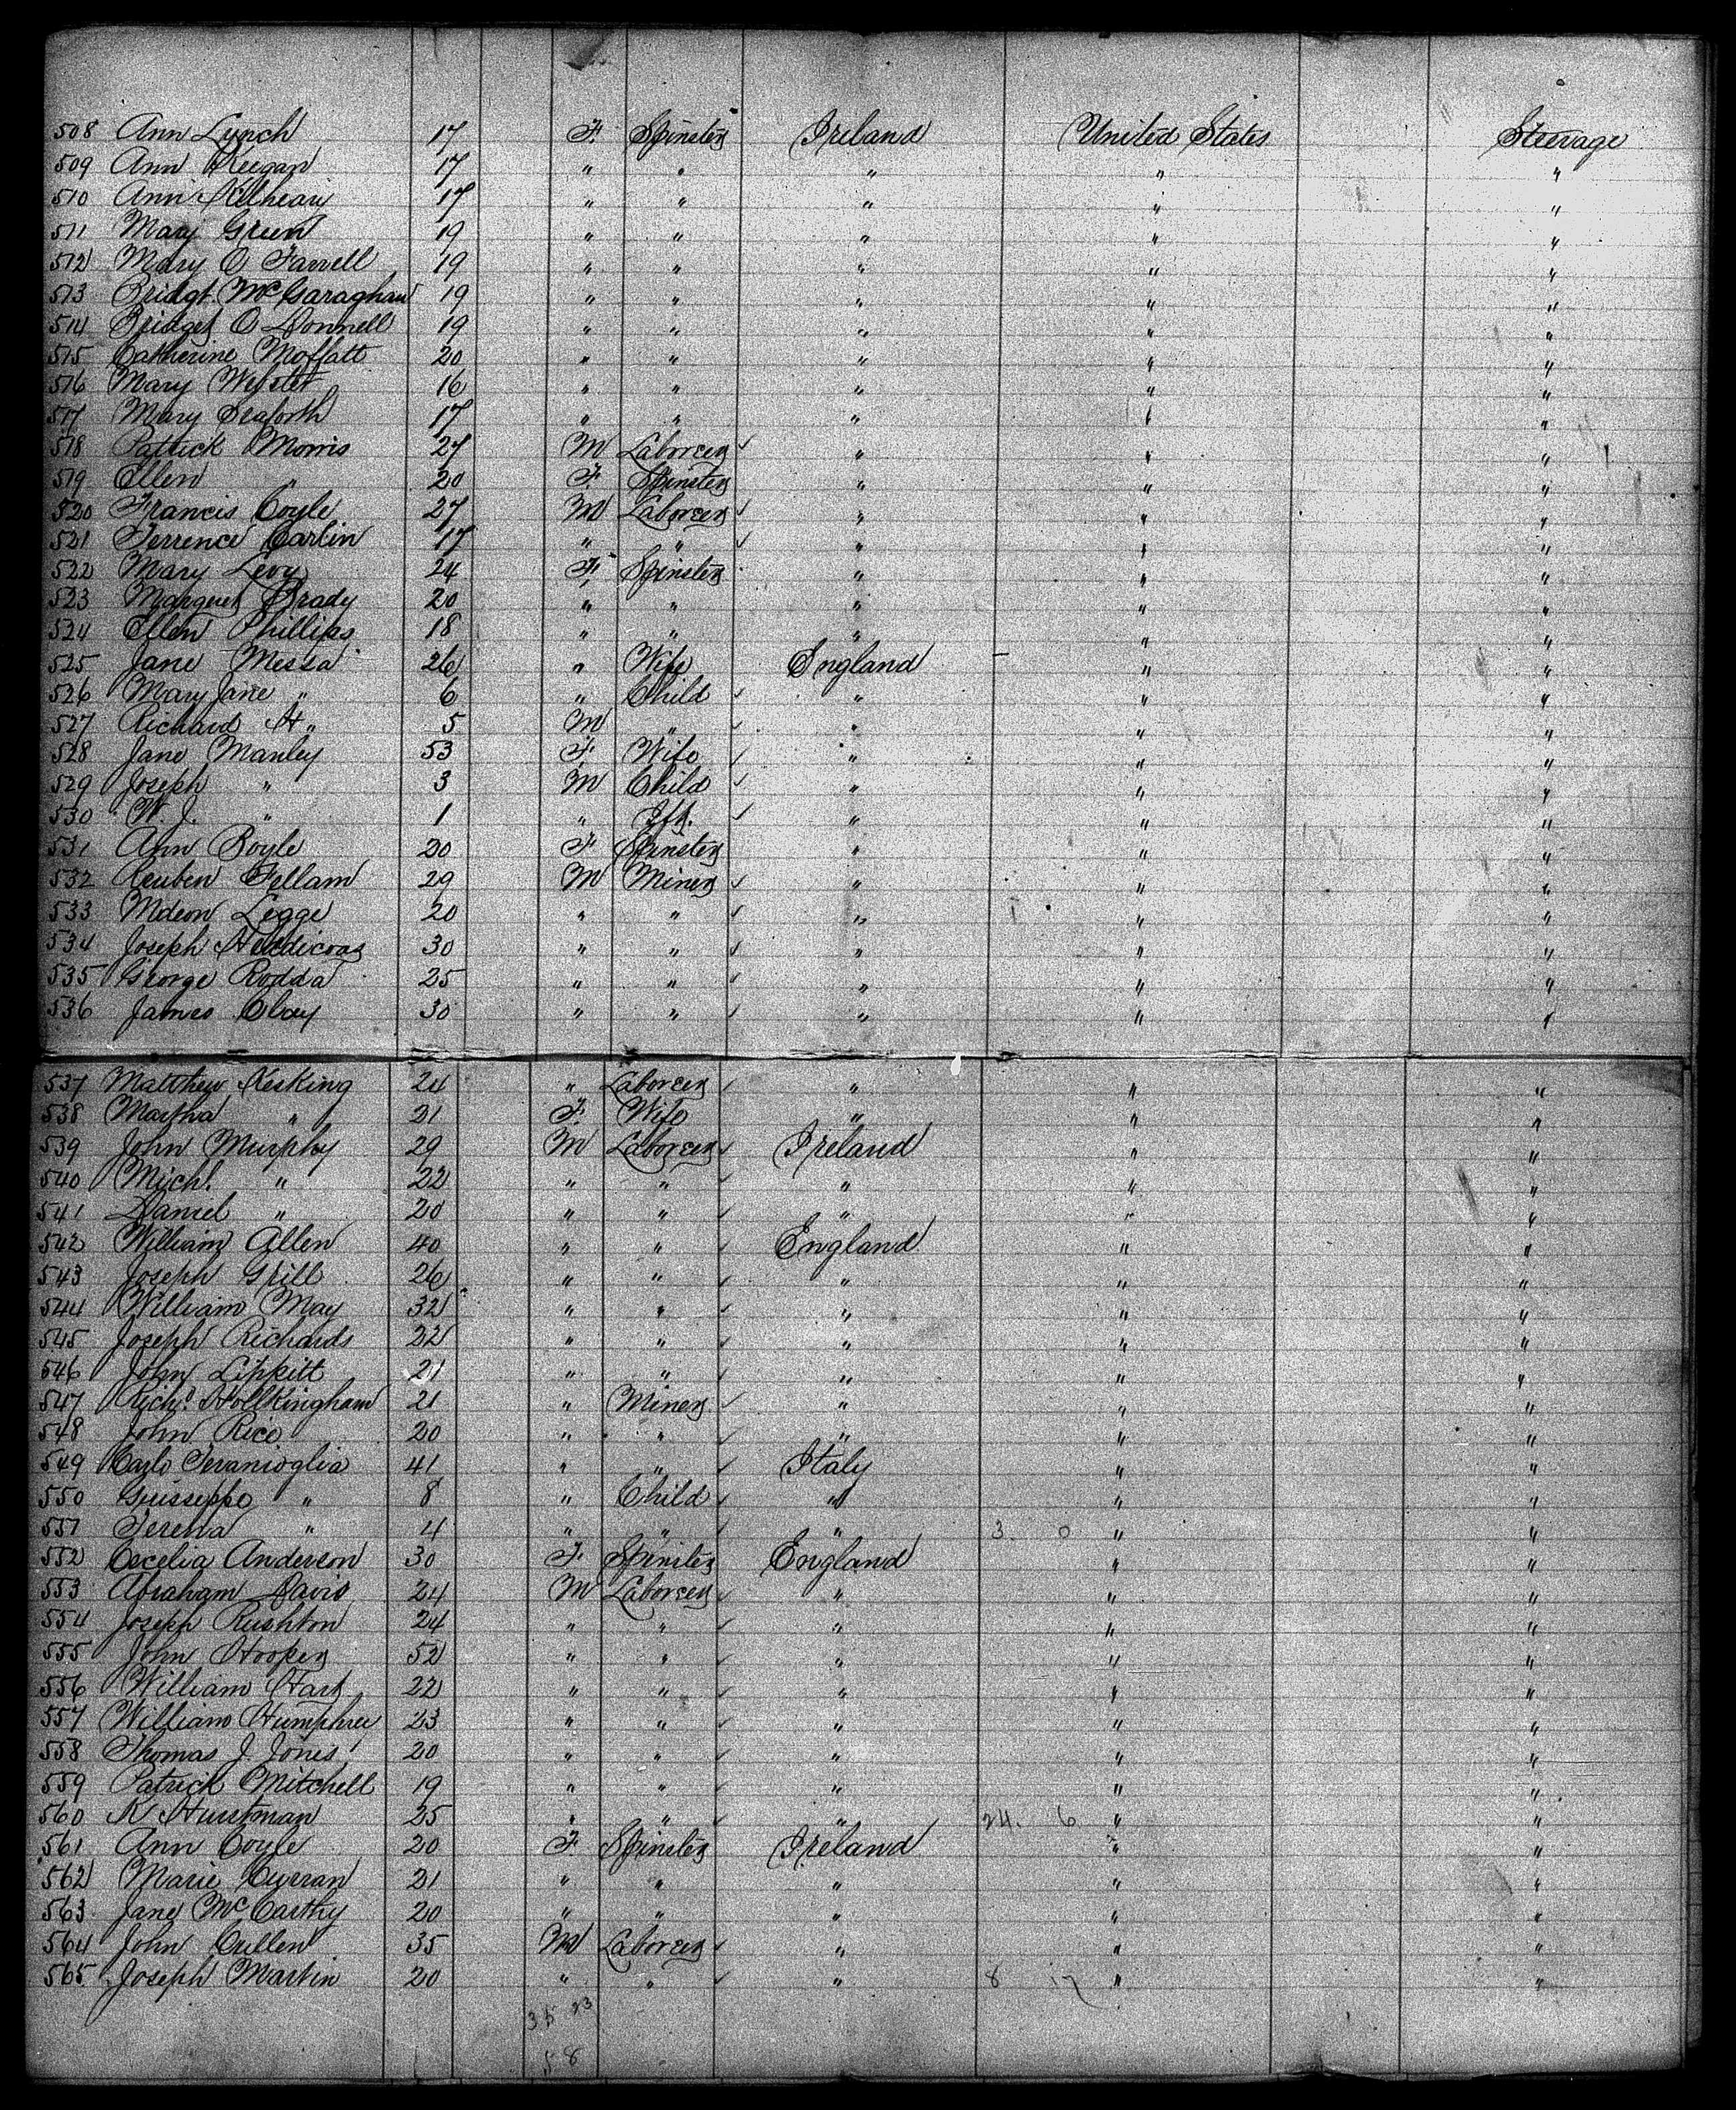 508 Ann Lynch 17 F. Spinster Ireland United States Steerage
509 Ann Keegan 17 " " " " "
510 Ann Kilheani 17 " " " " "
511 Mary Green 19 " " " " "
512 Mary O Farrell 19 " " " " "
513 Bridgt. McGaraghan 19 " " " " "
514 Bridget O Donnell 19 " " " " "
515 Catherine Moffatt 20 " " " " "
516 Mary Webster 16 " " " " "
517 Mary Seaforth 17 " " " " "
518 Patrick Morris 27 M Laborer " " "
519 Ellen " 20 F. Spinster " " "
520 Francis Coyle 27 M Laborer " " "
521 Terrence Carlin 17 " " " " "
522 Mary Levy 24 F. Spinster " " "
523 Margret Brady 20 " " " " "
524 Ellen Phillips 18 " " " " "
525 Jane Messa 26 " Wife England " "
526 Mary Jane " 6 " Child " " "
527 Richard H " 5 M " " " "
528 Jane Manley 53 F. Wife " " "
529 Joseph " 3 M Child " " "
530 W. J. " 1 " Ift. " " "
531 Ann Boyle 20 F Spinster " " "
532 Reuben Fellam 29 M Miner " " "
533 Legge 20 " " " " "
534 Joseph 30 " " " " "
535 George Rodda 25 " " " " "
536 James Clay 30 " " " " "
537 Matthew Kesking 24 " Laborer " " "
538 Martha " 21 F. Wife " " "
539 John Murphy 29 M Laborer Ireland " "
540 Michl. " 22 " " " " "
541 Daniel " 20 " " " " "
542 William Allen 40 " " England " "
543 Joseph Grill 26 " " " " "
544 William May 32 " " " " "
545 Joseph Richards 22 " " " " "
546 John Lippitt 21 " " " " "
547 Richd. Hollkingham 21 " Miner " " "
548 John Rice 20 " " " " "
549 Carlo Teranioglia 41 " " Italy " "
550 Guisseppe " 8 " Child " " "
551 Teresa " 4 " " " 3. 0 " "
552 Cecelia Anderson 30 F. Spinster England " "
553 Abraham Davis 24 M Laborer " " "
554 Joseph Rushton 24 " " " " "
555 John Hooper 52 " " " " "
556 William Hart 22 " " " " "
557 William Humphrey 23 " " " " "
558 Thomas J. Jones 20 " " " " "
559 Patrick Mitchell 19 " " " " "
560 K Hurstman 25 " " " 24. 6 " "
561 Ann Coyle 20 F Spinster Ireland " "
562 Marie Curran 21 " " " " "
563 Jane McCarthy 20 " " " " "
564 John Cullen 35 M Laborer " " "
565 Joseph Martin 20 " " " 8 17 " "
35 23
58